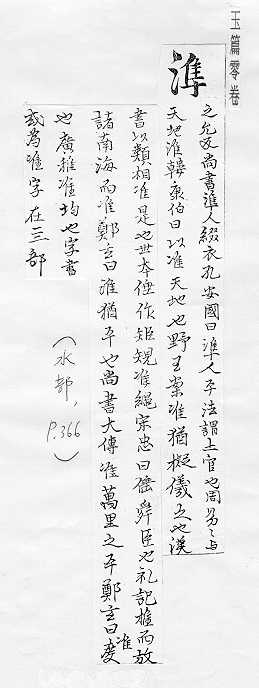 玉篇零卷
準 之允反尚書準人綴衣孔安國曰準人平法謂士官也周易〻與
天地准韓康伯曰以准天地也野王案准猶擬儀之也漢
書以類相准是也世本倕作矩規准繩宋忠曰倕舜臣也礼記推而放
諸南海而准鄭玄曰准猶平也尚書大傳准萬里之平鄭玄曰准度
也廣雅准均也字書
或為准字在冫部
（水部，P.366）